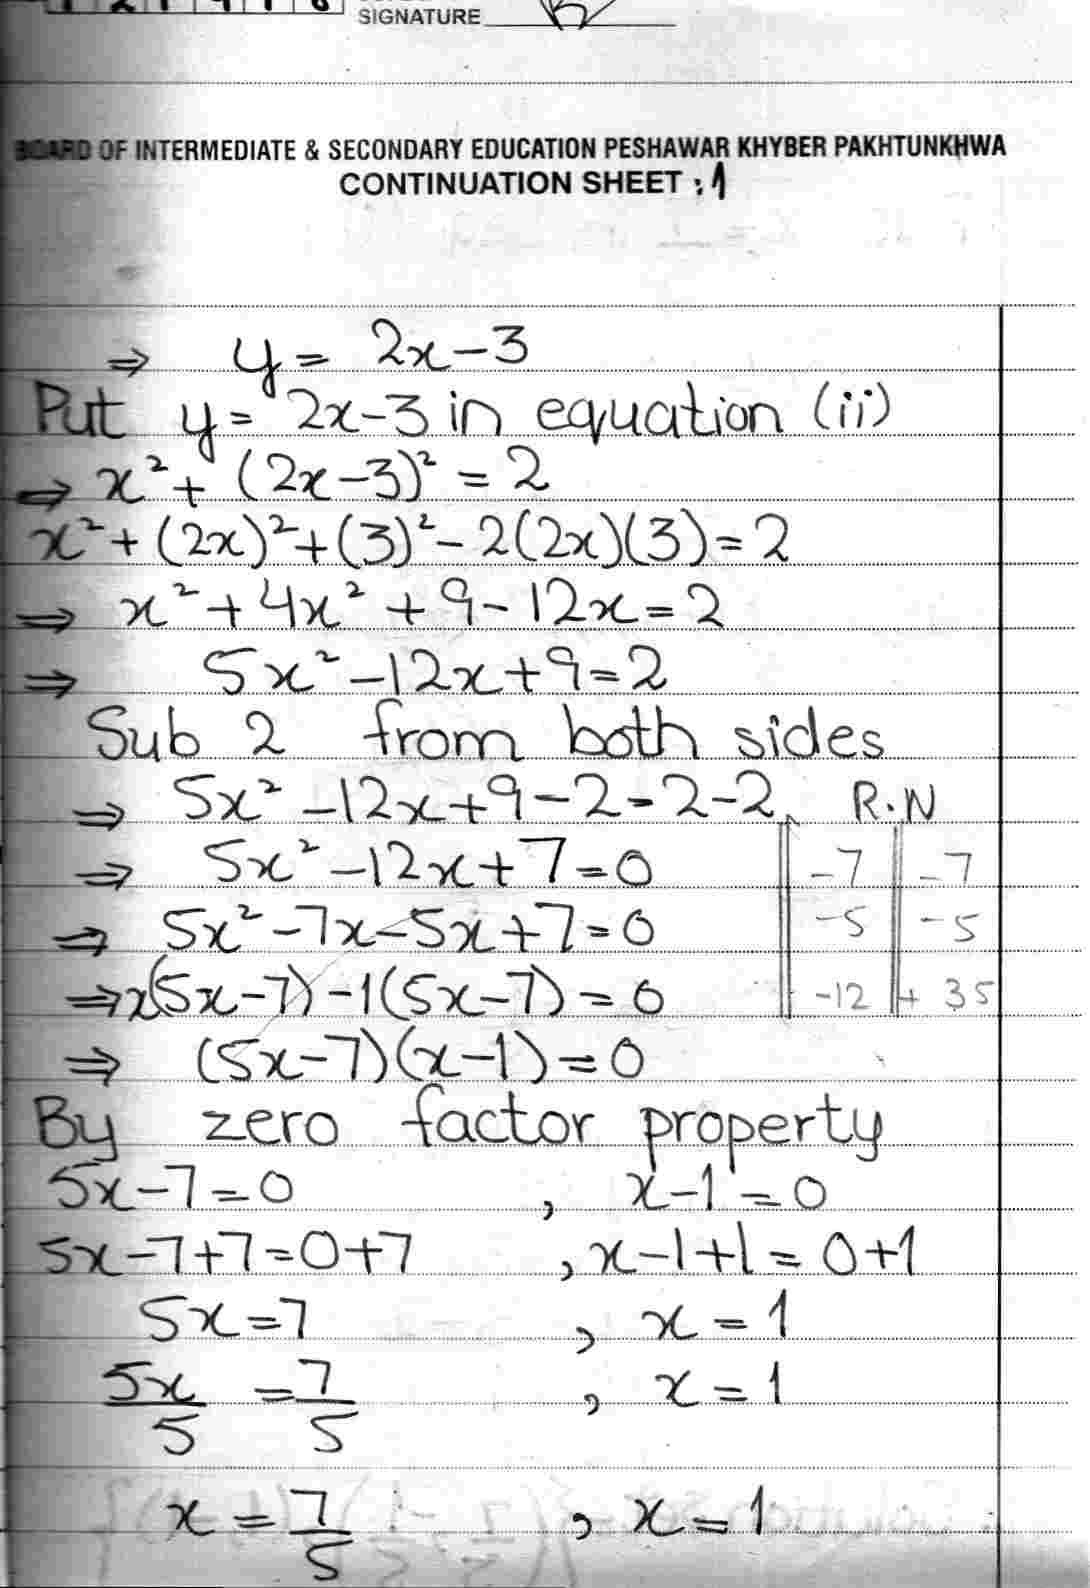 SIGNATURE
BOARD OF INTERMEDIATE & SECONDARY EDUCATION PESHAWAR KHYBER PAKHTUNKHWA
CONTINUATION SHEET : 1
⇒ y = 2x-3
Put y = 2x-3 in equation (ii)
⇒ x² + (2x-3)² = 2
x² + (2x)² + (3)² - 2(2x)(3) = 2
⇒ x² + 4x² + 9 - 12x = 2
⇒ 5x² - 12x + 9 = 2
Sub 2 from both sides
⇒ 5x² - 12x + 9 - 2 = 2 - 2 R.N
⇒ 5x² - 12x + 7 = 0 -7 -7
⇒ 5x² - 7x - 5x + 7 = 0 -5 -5
⇒ x(5x-7) - 1(5x-7) = 0 -12 + 35
⇒ (5x-7)(x-1) = 0
By zero factor property
5x-7 = 0 , x-1 = 0
5x-7+7 = 0+7 , x-1+1 = 0+1
5x = 7 , x = 1
5x/5 = 7/5 , x = 1
x = 7/5 , x = 1